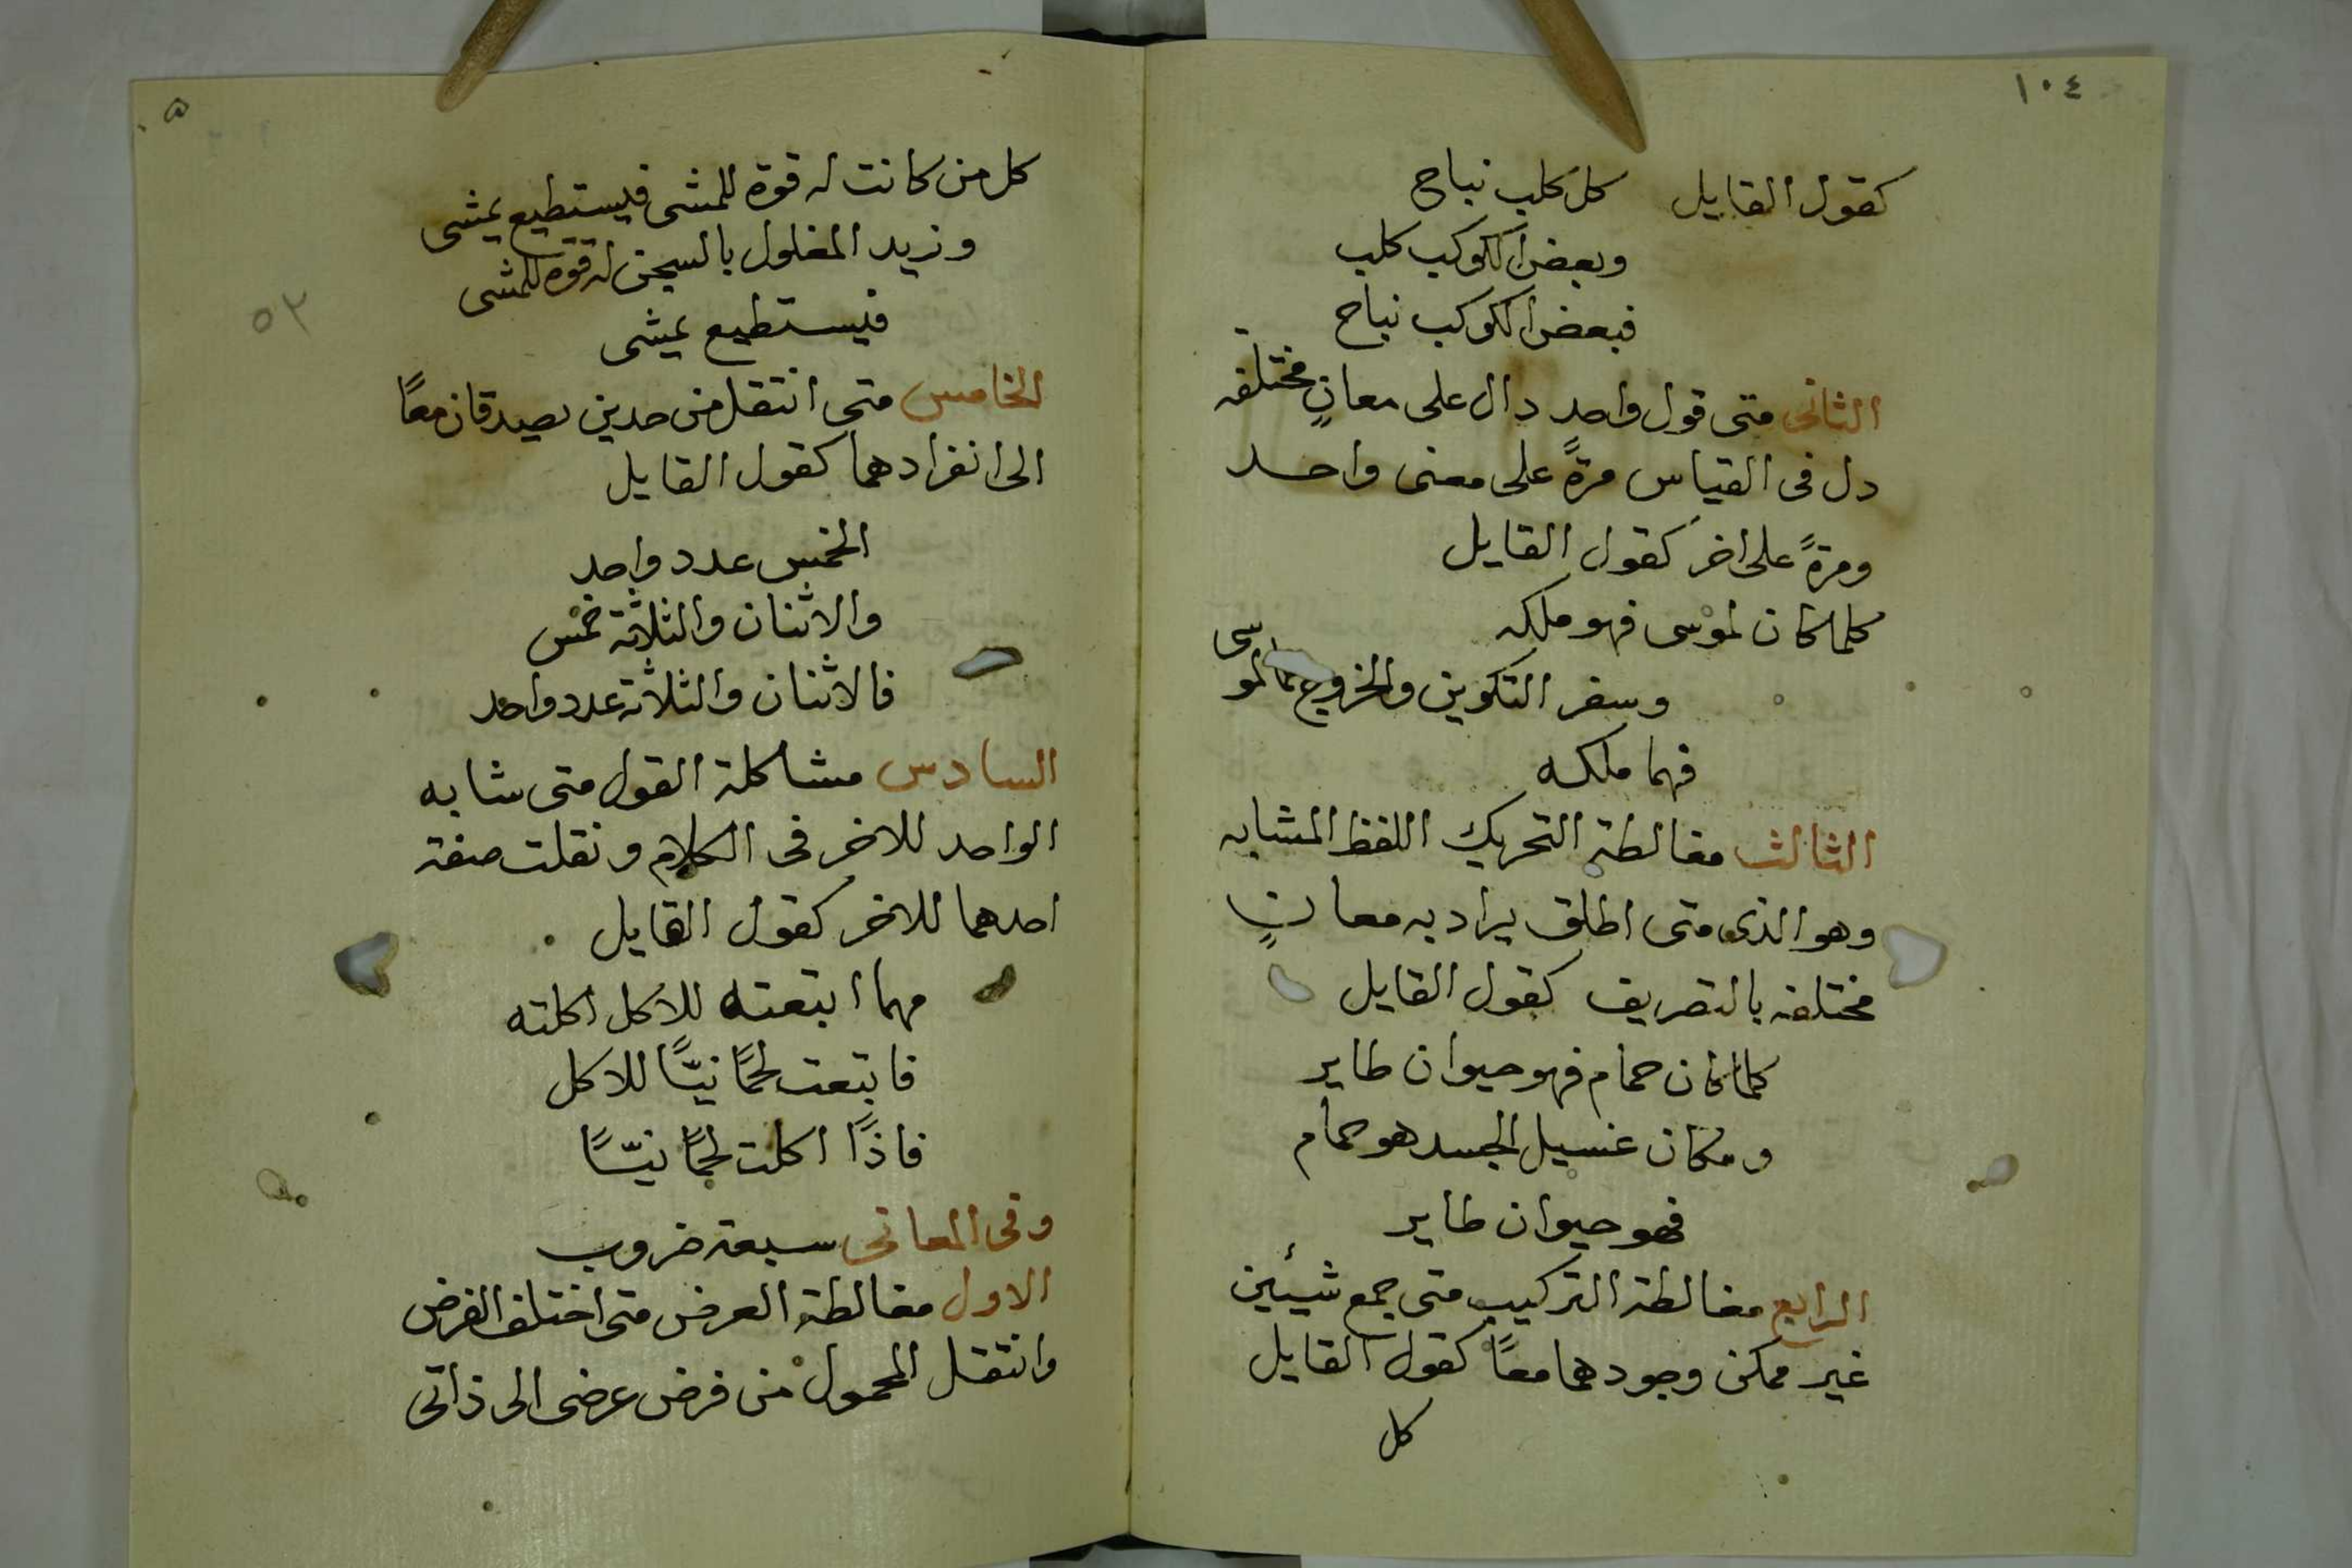 ١٠٤
كقول القايل كل كلب نباح
وبعض الكوكب كلب
فبعض الكوكب نباح
الثانى متى قول واحد دال على معانٍ مختلفه
دل فى القياس مرةً على معنى واحد
ومرةً على اخر كقول القايل
كلما كان لموسى فهو ملكه
وسفر التكوين والخروج هما لموسى
فهما ملكه
الثالث مغالطة التحريك اللفظ المشابه
وهو الذى متى اطلق يراد به معانٍ
مختلفه بالتصريف كقول القايل
كلما كان حمام فهو حيوان طاير
ومكان غسيل الجسد هو حمام
فهو حيوان طاير
الرابع مغالطة التركيب متى جمع شيئين
غير ممكن وجودهما معًا كقول القايل
كل
كل من كانت له قوة للمشى فيستطيع يمشى
وزيد المغلول بالسجن له قوة للمشى
فيستطيع يمشى
٥٢
الخامس متى انتقل من حدين يصدقان معًا
الى انفرادهما كقول القايل
الخمس عدد واحد
والاثنان والثلاثة خمس
فالاثنان والثلاثة عدد واحد
السادس مشاكلة القول متى شابه
الواحد للاخر فى الكلام ونقلت صفة
احدهما للاخر كقول القايل
مهما ابتعته للاكل اكلته
فابتعت لحمًا نيّـًا للاكل
فاذًا اكلت لحمًا نيّـًا
وفى المعانى سبعة ضروب
الاول مغالطة العرض متى اختلف الفرض
وانتقل المحمول من فرض عرضى الى ذاتى